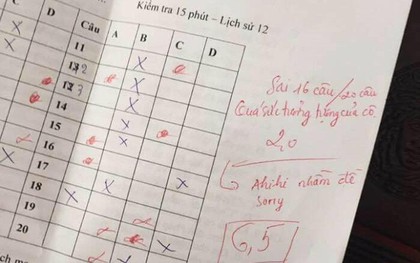 Kiểm tra 15 phút – Lịch sử 12
C D Câu A B C D
11
12
13
14
15
16
17
18
19
20
Sai 16 câu/20 câu
Quá sức tưởng tượng của cô.
2,0
Ahihi nhầm đề
sorry
6,5